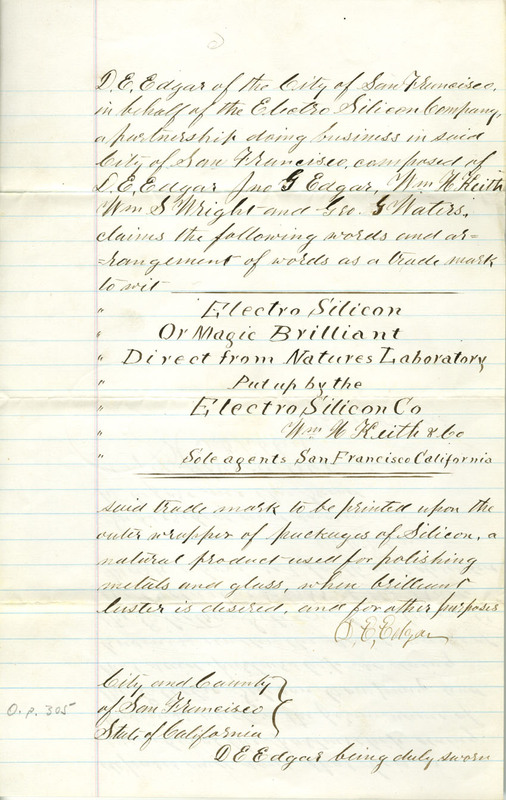 D, E, Edgar of the City of San Francisco,
in behalf of the Electro Silicon Company,
a partnership doing business in said
City of San Francisco, composed of
D, E, Edgar Jno G Edgar, Wm H Keith
Wm S Wright and Geo. G Waters,
claims the following words and ar=
=rangement of words as a trade mark
to wit
" Electro Silicon
" Or Magic Brilliant
" Direct from Natures Laboratory
" Put up by the
" Electro Silicon Co
" Wm H Keith & Co
" Sole agents San Francisco California
said trade mark to be printed upon the
outer wrapper of packages of Silicon, a
natural product used for polishing
metals and glass, when brilliant
luster is desired, and for other purposes
D, E, Edgar
City and County
of San Francisco
State of California
O.p. 305
D E Edgar being duly sworn